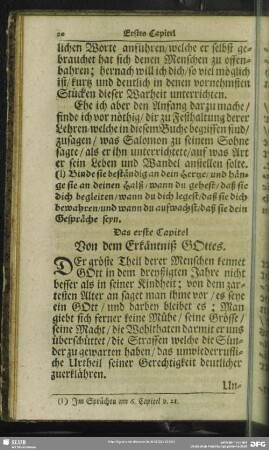 20 Erstes Capitel
lichen Worte anführen/welche er selbst ge-
brauchet hat sich denen Menschen zu offen-
bahren; hernach will ich dich/so viel möglich
ist/kurtz und deutlich in denen vornehmsten
Stücken dieser Warheit unterrichten.
Ehe ich aber den Anfang darzu mache/
finde ich vor nöthig/dir zu Festhaltung derer
Lehren/welche in diesem Buche begriffen sind/
zusagen/was Salomon zu seinem Sohne
sagte/als er ihn unterrichtete/auf was Art
er sein Leben und Wandel anstellen solte.
(1) Binde sie beständig an dein Hertze/und hän-
ge sie an deinen Halß/wann du gehest/daß sie
dich begleiten/wann du dich legest/daß sie dich
bewahren/und wann du aufwachst/daß sie dein
Gespräche seyn.
Das erste Capitel
Von dem Erkäntniß GOttes.
DEr gröste Theil derer Menschen kennet
GOtt in dem dreyßigten Jahre nicht
besser als in seiner Kindheit; von dem zar-
testen Alter an saget man ihme vor/es seye
ein GOtt/und darbey bleibet es; Man
giebt sich ferner keine Mühe/seine Grösse/
seine Macht/die Wohlthaten darmit er uns
überschüttet/die Straffen welche die Sün-
der zu gewarten haben/das unwiederrufli-
che Urtheil seiner Gerechtigkeit deutlicher
zuerklähren.
Un-
(1) Jm Sprüchen am 6. Capitel v. 21.
SLUB